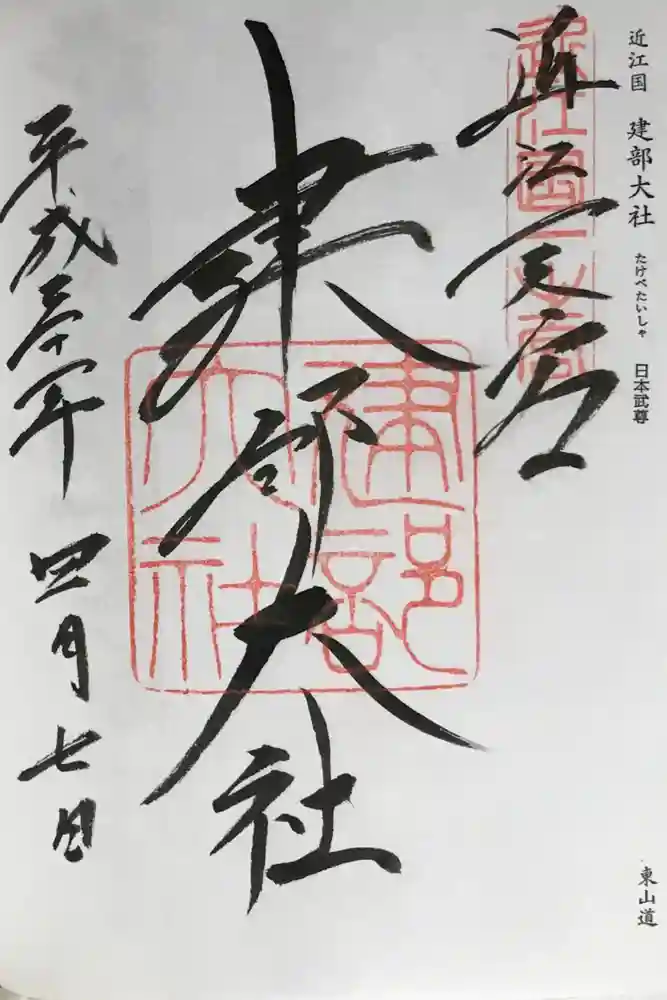 近江国 建部大社 たけべたいしゃ 日本武尊
東山道
近江国一之宮
近江一之宮
建部大社
建部大社
平成三十年 四月七日